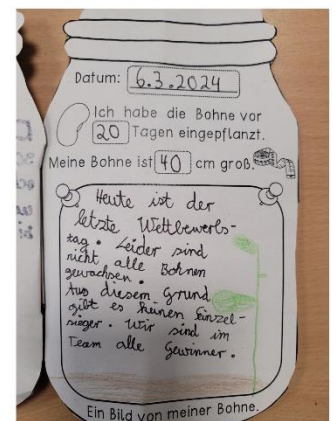 Datum: 6.3.2024
Ich habe die Bohne vor
20 Tagen eingepflanzt.
Meine Bohne ist 40 cm groß.
Heute ist der
letzte Wettbewerbs-
tag. Leider sind
nicht alle Bohnen
gewachsen.
Aus diesem Grund
gibt es keinen Einzel-
sieger. Wir sind im
Team alle Gewinner.
Ein Bild von meiner Bohne.